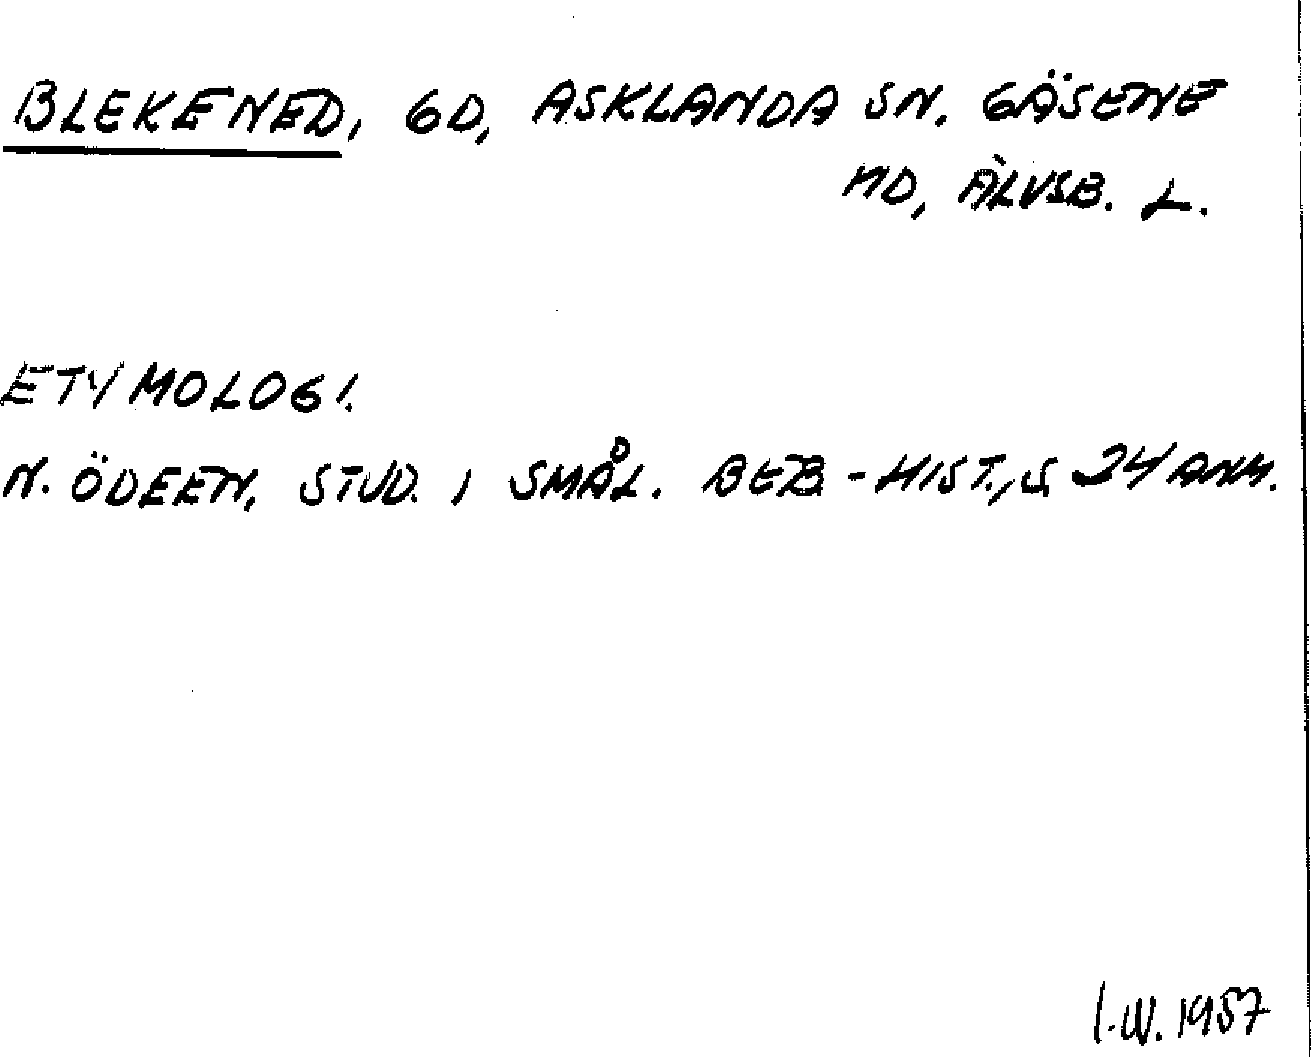 BLEKENED, GD, ASKLANDA SN. GÄSENE
HD, ÄLVSB. L.
ETYMOLOGI.
N. ÖDEEN, STUD. I SMÅL. BEB-HIST., S. 24 ANM.
I.W. 1957